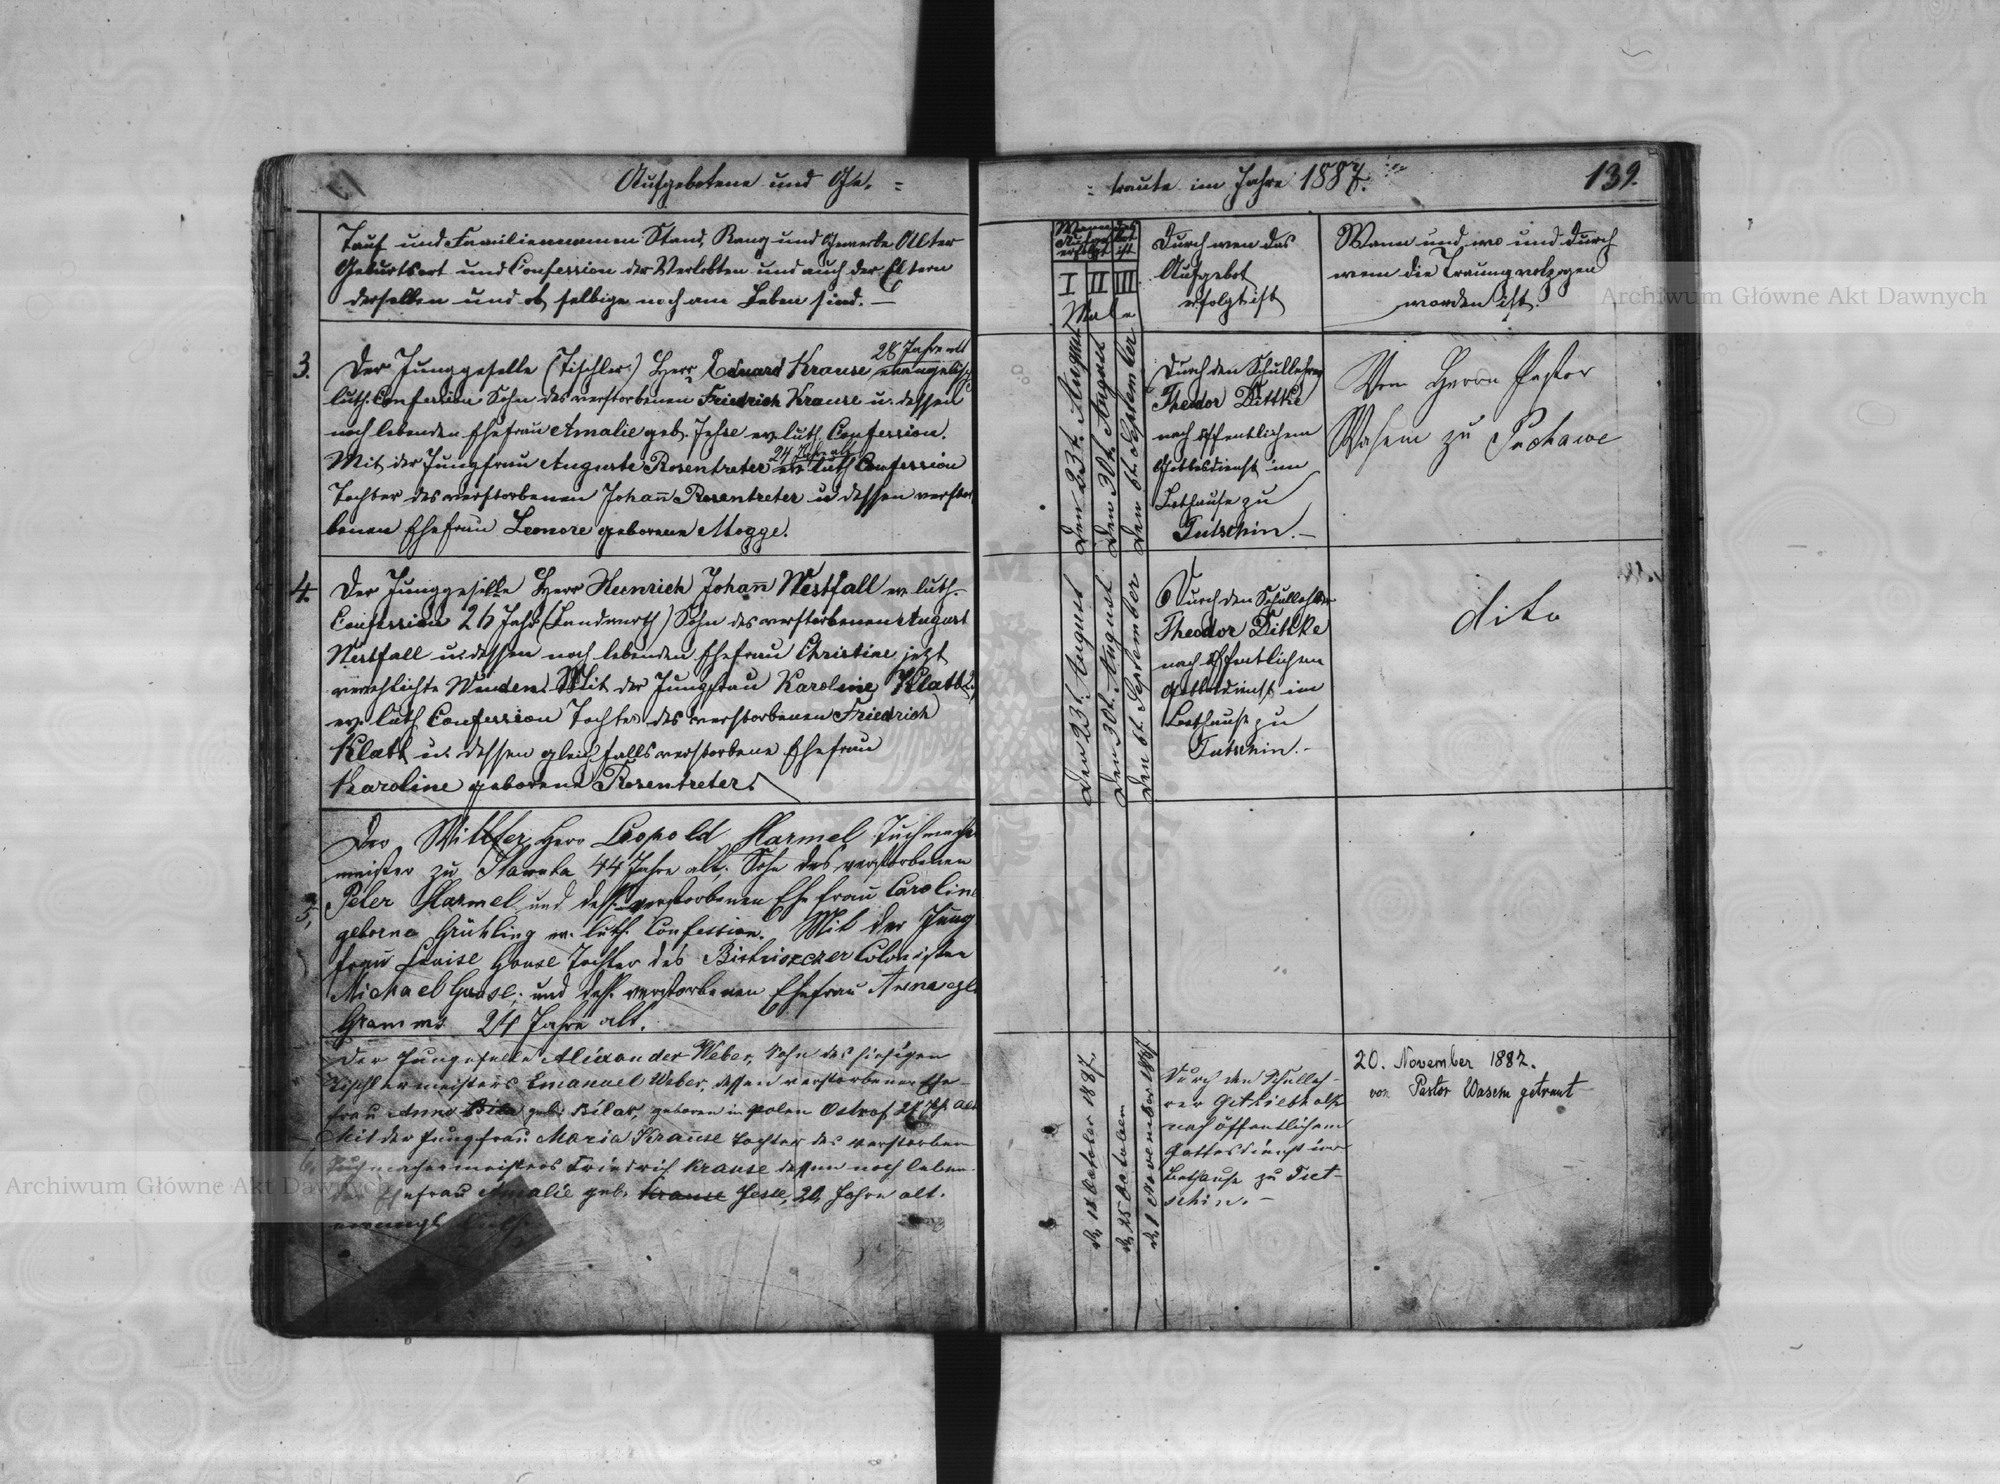 Aufgebotene und Ge. =
= traute im Jahre 1887.
139.
Tauf und Familiennamen Stand, Rang und Gewerbe Alter
Geburtsort und Confession der Verlobten und auch der Eltern
derselben und ob selbige noch am Leben sind. —
Wann das
Aufgebot
erfolgt ist
I II III
Male
Durch wen das
Aufgebot
erfolgt ist
Wann und wo und durch
wem die Trauung vollzogen
worden ist.
3.
28 Jahre alt
Der Junggeselle (Tischler) Herr Eduard Krause evangelisch
luth. Confession Sohn des verstorbenen Friedrich Krause u. dessen
noch lebenden Ehefrau Amalie geb. Jesse ev. luth. Confession.
24 Jahr alt
Mit der Jungfrau Auguste Rosentreter ev luth Confession
Tochter des verstorbenen Johann Rosentreter u dessen verstor
benen Ehefrau Leonore geborene Mogge.
den 23t. August
den 30t. August
den 6t. September
Durch den Schullehrer
Theodor Dittke
nach öffentlichem
Gottesdienst im
Bethause zu
Tutschin. —
Von Herrn Pastor
Wasem zu
4.
Der Junggeselle Herr Heinrich Johann Westfall ev luth.
Confession 26 Jahr (Landwirth) Sohn des verstorbenen August
Westfall u. dessen noch lebenden Ehefrau Christine jetzt
verehlichte Wenden. Mit der Jungfrau Karoline Klatt
ev. luth Confession Tochter des verstorbenen Friedrich
Klatt u. dessen gleichfalls verstorbene Ehefrau
Karoline geborene Rosentreter.
den 23t. August
den 30t. August
den 6t. September
Durch den Schullehrer
Theodor Dittke
nach öffentlichem
Gottesdienst im
Bethause zu
Tutschin. —
dito
5,
Der Wittwer, Herr Leopold Harmel Tuchmacher
meister zu 44 Jahre alt, Sohn des verstorbenen
Peter Harmel, und dess. verstorbenen Ehefrau Caroline
geborne Grühling ev. luth. Confession. Mit der Jung
frau Louise Gonse Tochter des Colonisten
Michael Gonse, und dess. verstorbenen Ehefrau Anna
24 Jahre alt.
6.
Der Jungeselle Alixander Weber, Sohn des hiesigen
Tischlermeisters Emanuel Weber, dessen verstorbener Ehe-
frau Anna geb. Bilar, geboren in Polen Ostrof alt
Mit der Jungfrau Maria Krause Tochter des verstorben
Tuchmachermeisters Friedrich Krause dessen noch leben
den Ehefrau Amalie geb. Krause Jesse, 20 Jahre alt.
evangl. luth.
d. 18 October 1887.
d. 25 October
d. 1 November 1887.
Durch den Schulleh-
rer
nach öffentlichem
Gottesdienst im
Bethause zu Tut-
schin. —
20. November 1887.
von Pastor Wasem getraut
Archiwum Główne Akt Dawnych
Archiwum Główne Akt Dawnych